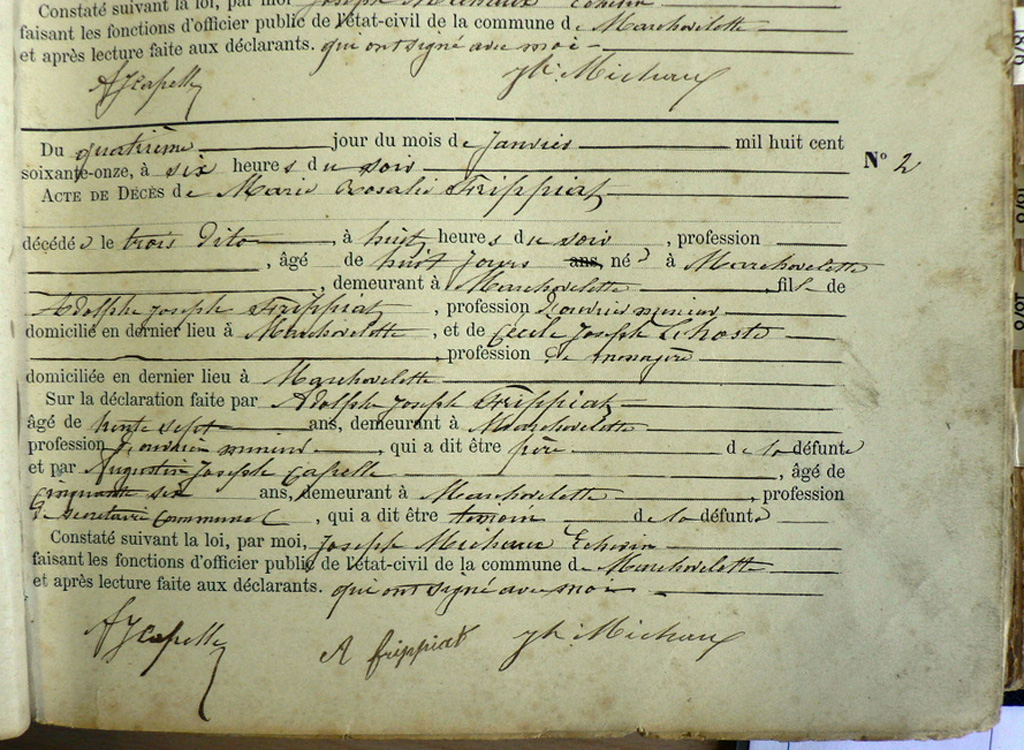 Constaté suivant la loi, par moi Joseph Michaux Echevin
faisant les fonctions d'officier public de l'état-civil de la commune de Marchovelette
et après lecture faite aux déclarants. qui ont signé avec moi
AJCapelle Jh. Michaux
Du quatrième jour du mois de Janvier mil huit cent
soixante-onze, à six heures du soir
N° 2
ACTE DE DÉCÈS de Marie Rosalie Frippiat
décédée le trois dito, à huit heures du soir, profession
, âgé de huit jours ans, née à Marchovelette
, demeurant à Marchovelette, fille de
Adolphe Joseph Frippiat, profession d'ouvrier mineur
domicilié en dernier lieu à Marchovelette, et de Cecile Joseph Lhoste
, profession de menagère
domiciliée en dernier lieu à Marchovelette
Sur la déclaration faite par Adolphe Joseph Frippiat
âgé de trente sept ans, demeurant à Marchovelette
profession d'ouvrier mineur, qui a dit être père de la défunte
et par Augustin Joseph Capelle, âgé de
cinquante six ans, demeurant à Marchovelette, profession
de secretaire communal, qui a dit être temoin de la défunte
Constaté suivant la loi, par moi, Joseph Michaux Echevin
faisant les fonctions d'officier public de l'état-civil de la commune de Marchovelette
et après lecture faite aux déclarants. qui ont signé avec moi
AJCapelle A frippiat Jh. Michaux